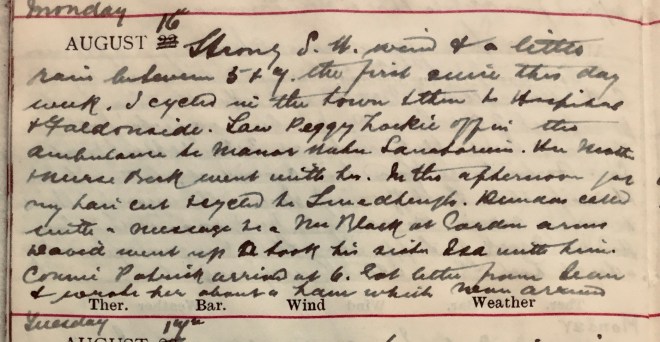 Monday
AUGUST 16th 22 Strong S. W. wind & a little
rain between 5 & 7. the first since this day
week. I cycled in the town & then to Hospital
& Faldonside. Saw Peggy Lockie off in the
ambulance to Manor Sanatorium. Her Mother
& Nurse Beck went with her. In the afternoon got
my hair cut & cycled to Dundas called
with a message to a Mrs Black at Cardon
David went up & took his sister Isa with him.
Connie Patrick arrived at 6. Got letter from Jean
& wrote her about a ham which never arrived
Ther. Bar. Wind Weather
Tuesday 17th
AUGUST